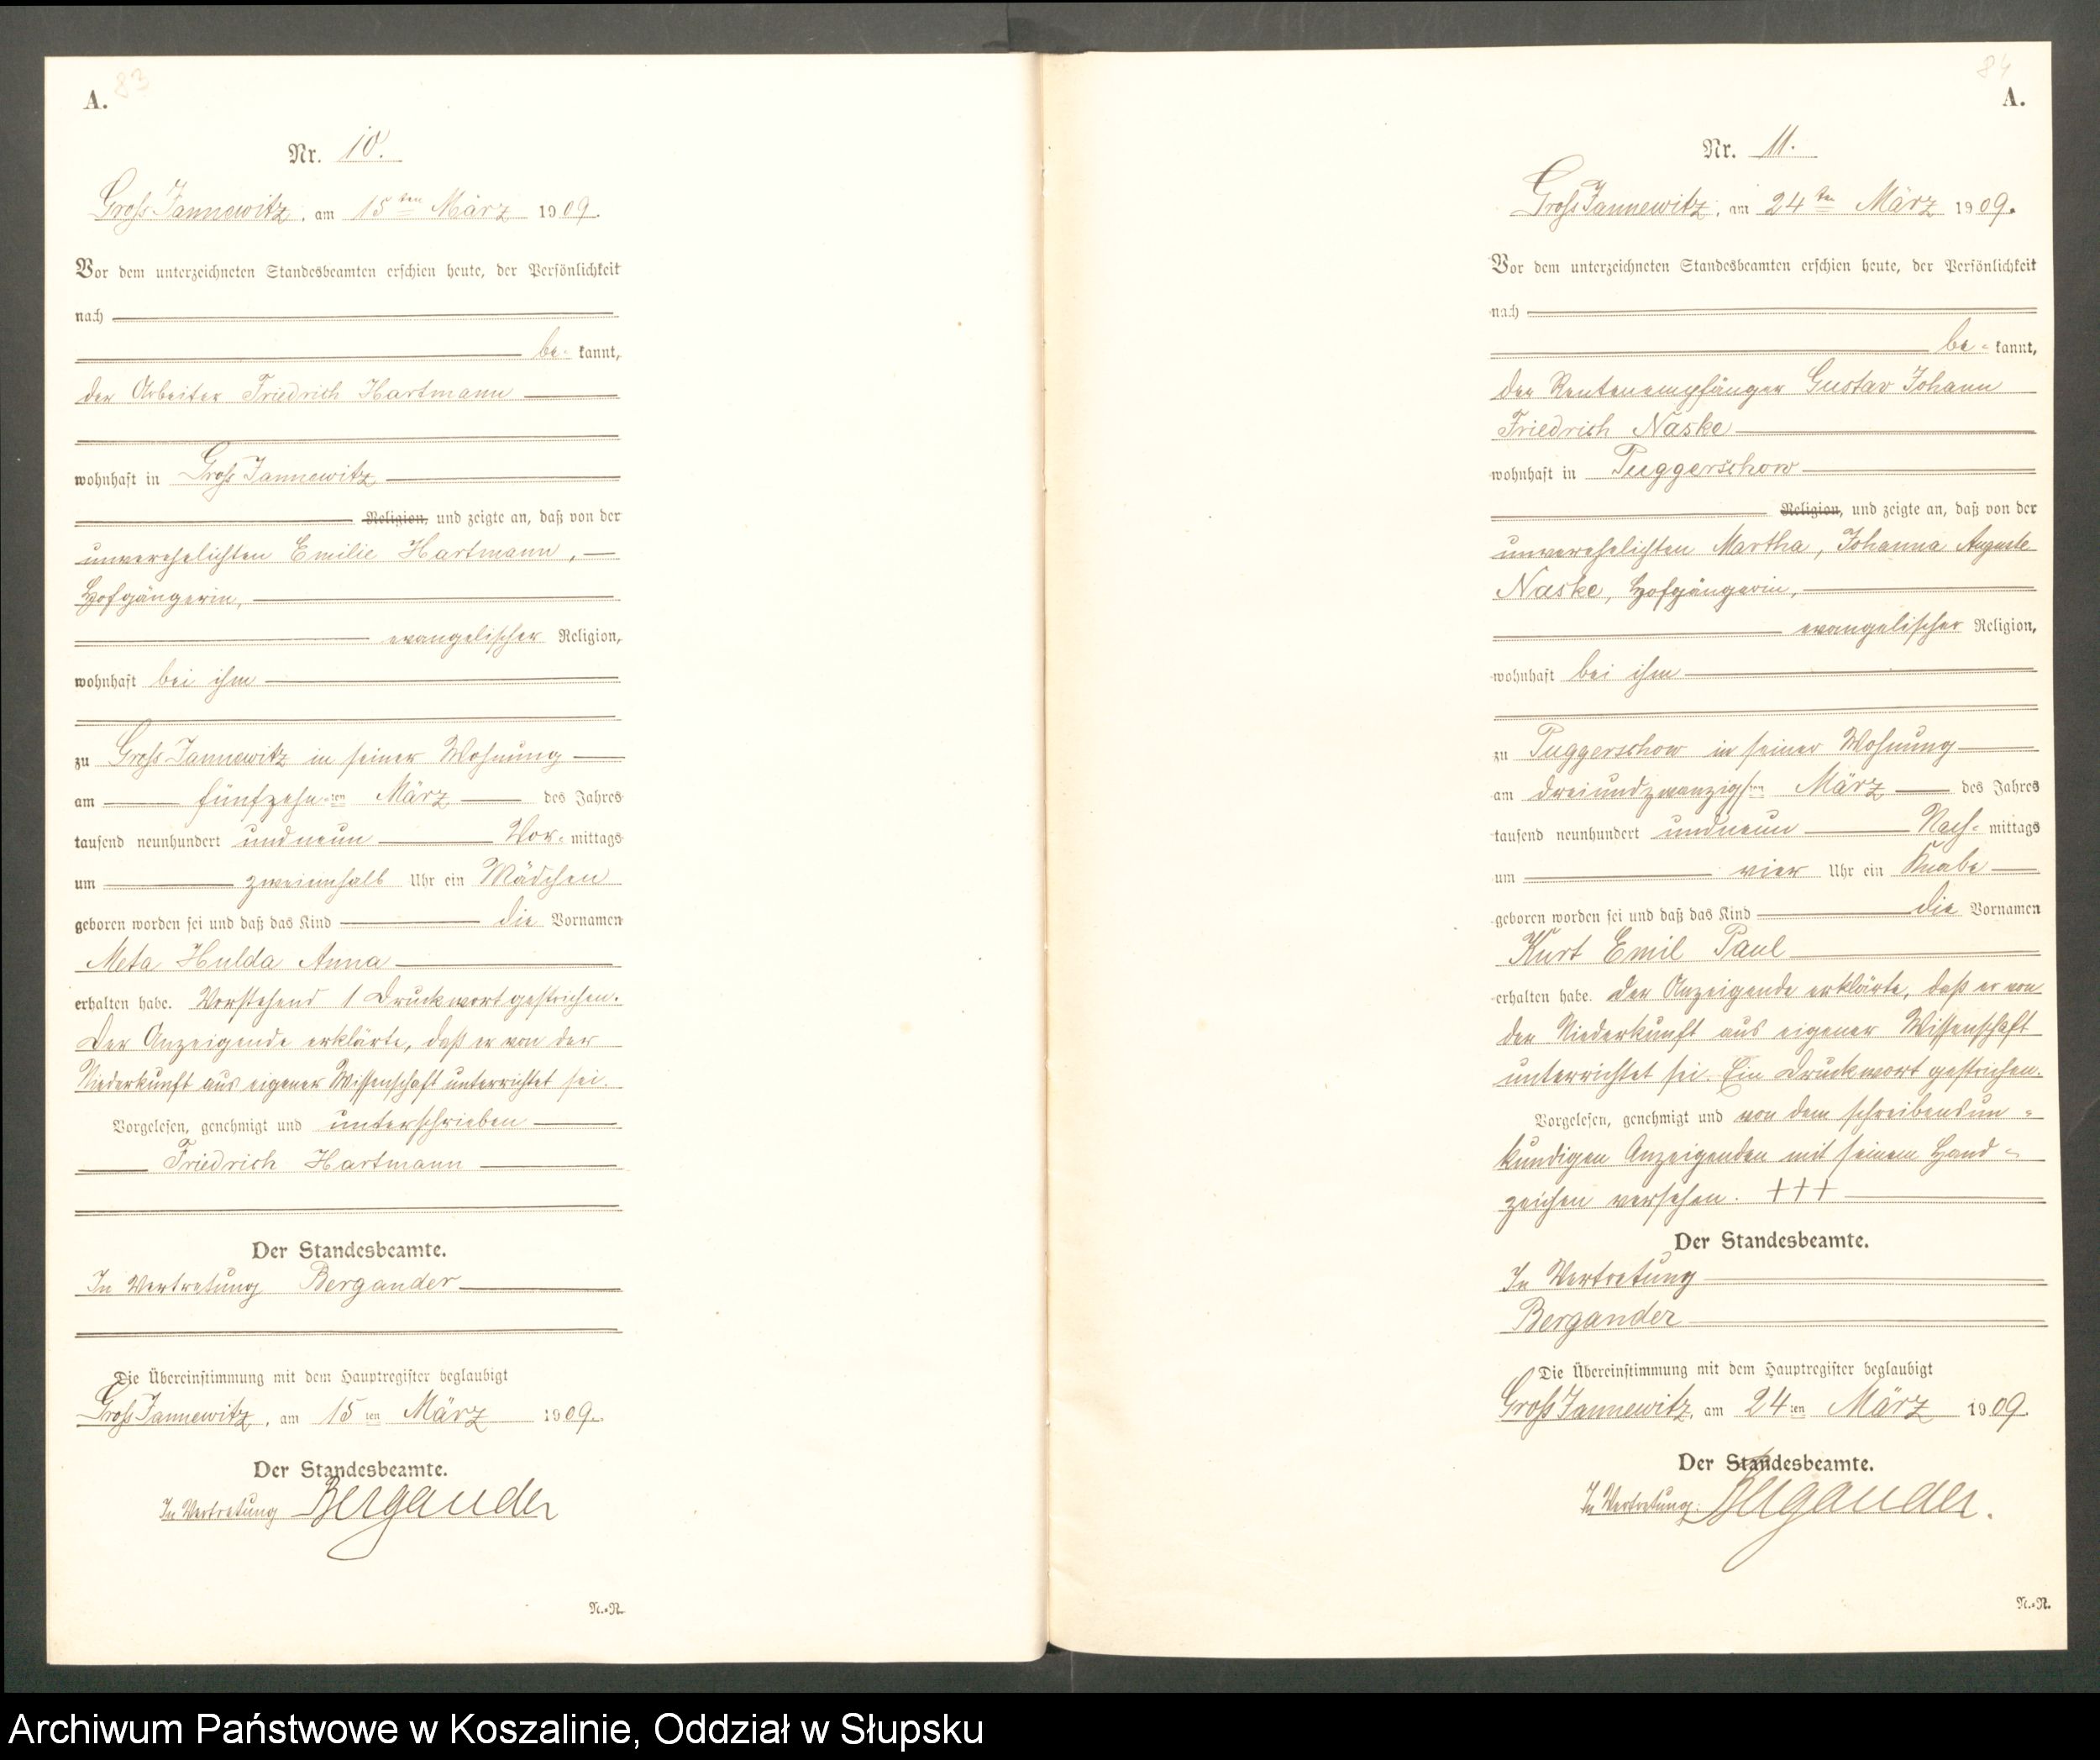 83
A.
Nr. 10.
Groß Jannewitz, am 15ten März 1909.
Vor dem unterzeichneten Standesbeamten erschien heute, der Persönlichkeit
nach
be- kannt,
der Arbeiter Friedrich Hartmann
wohnhaft in Groß Jannewitz
Religion, und zeigte an, daß von der
unverehelichten Emilie Hartmann,
Hofgängerin,
evangelischer Religion,
wohnhaft bei ihm
zu Groß Jannewitz in seiner Wohnung
am fünfzehnten März des Jahres
tausend neunhundert und neun Vor- mittags
um zweieinhalb Uhr ein Mädchen
geboren worden sei und daß das Kind die Vornamen
Meta Hulda Anna
erhalten habe. Vorstehend 1 Druckwort gestrichen.
Der Anzeigende erklärte, daß er von der
Niederkunft aus eigener Wissenschaft unterrichtet sei.
Vorgelesen, genehmigt und unterschrieben
Friedrich Hartmann
Der Standesbeamte.
In Vertretung Bergander
Die Übereinstimmung mit dem Hauptregister beglaubigt
Groß Jannewitz, am 15ten März 1909.
Der Standesbeamte.
In Vertretung Bergander
N.=R.
84
A.
Nr. 11.
Groß Jannewitz, am 24ten März 1909.
Vor dem unterzeichneten Standesbeamten erschien heute, der Persönlichkeit
nach
be- kannt,
der Rentenempfänger Gustav Johann
Friedrich Naske
wohnhaft in Puggerschow
Religion, und zeigte an, daß von der
unverehelichten Martha, Johanna Auguste
Naske, Hofgängerin,
evangelischer Religion,
wohnhaft bei ihm
zu Puggerschow in seiner Wohnung
am dreiundzwanzigsten März des Jahres
tausend neunhundert und neun Nach- mittags
um vier Uhr ein Knabe
geboren worden sei und daß das Kind die Vornamen
Kurt Emil Paul
erhalten habe. Der Anzeigende erklärte, daß er von
der Niederkunft aus eigener Wissenschaft
unterrichtet sei. Ein Druckwort gestrichen.
Vorgelesen, genehmigt und von dem schreibensun-
kundigen Anzeigenden mit seinem Hand-
zeichen versehen. +++
Der Standesbeamte.
In Vertretung
Bergander
Die Übereinstimmung mit dem Hauptregister beglaubigt
Groß Jannewitz, am 24ten März 1909.
Der Standesbeamte.
In Vertretung: Bergander.
N.=R.
Archiwum Państwowe w Koszalinie, Oddział w Słupsku